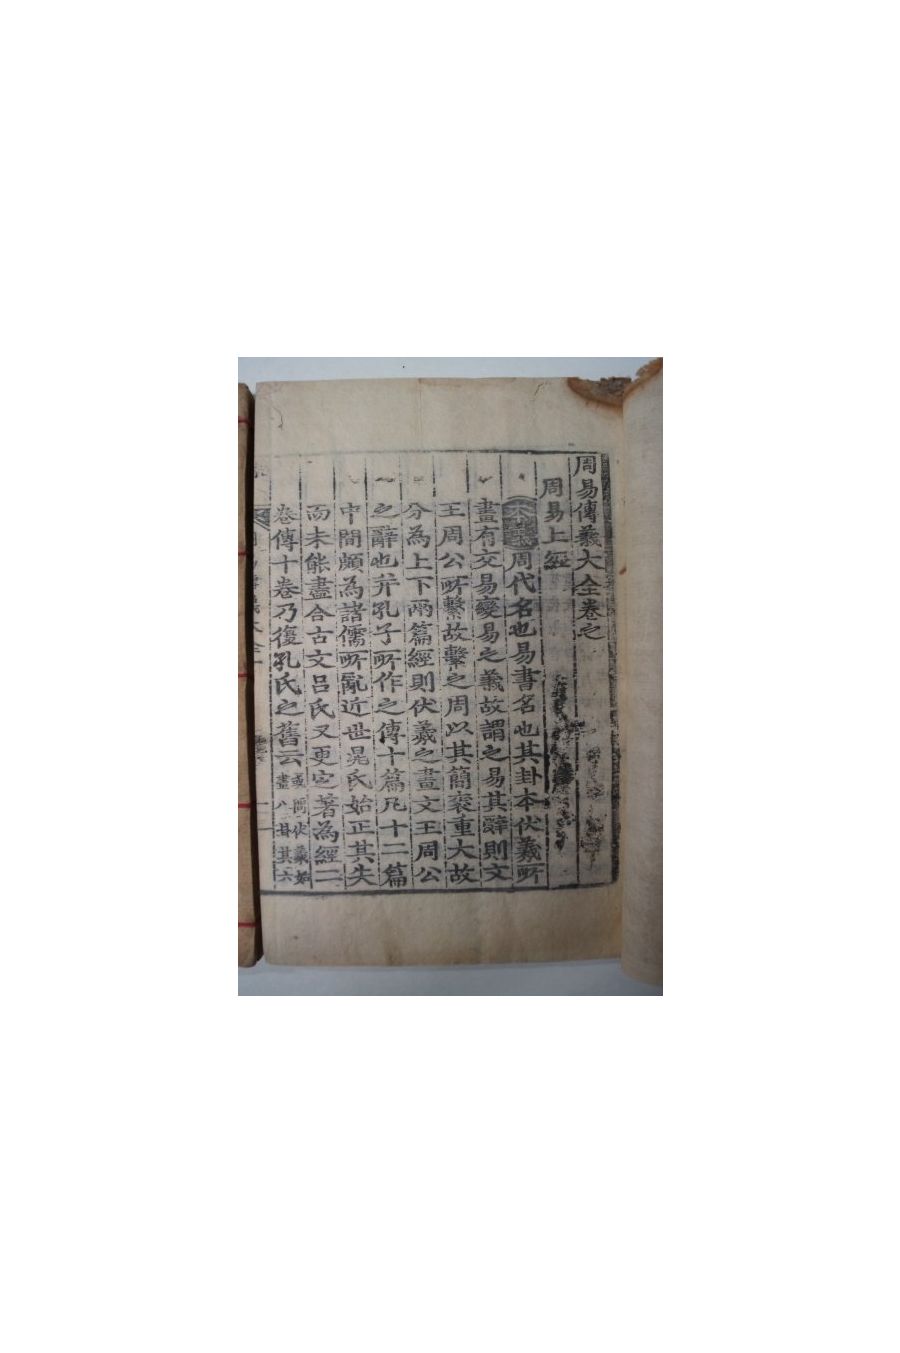 周易傳義大全卷之
周易上經
本義周代名也易書名也其卦本伏羲所
畫有交易變易之義故謂之易其辭則文
王周公所繫故繫之周以其簡袠重大故
分為上下兩篇經則伏羲之畫文王周公
之辭也并孔子所作之傳十篇凡十二篇
中間頗為諸儒所亂近世晁氏始正其失
而未能盡合古文呂氏又更定著為經二
卷傳十卷乃復孔氏之舊云
或問伏羲始
畫八卦其六